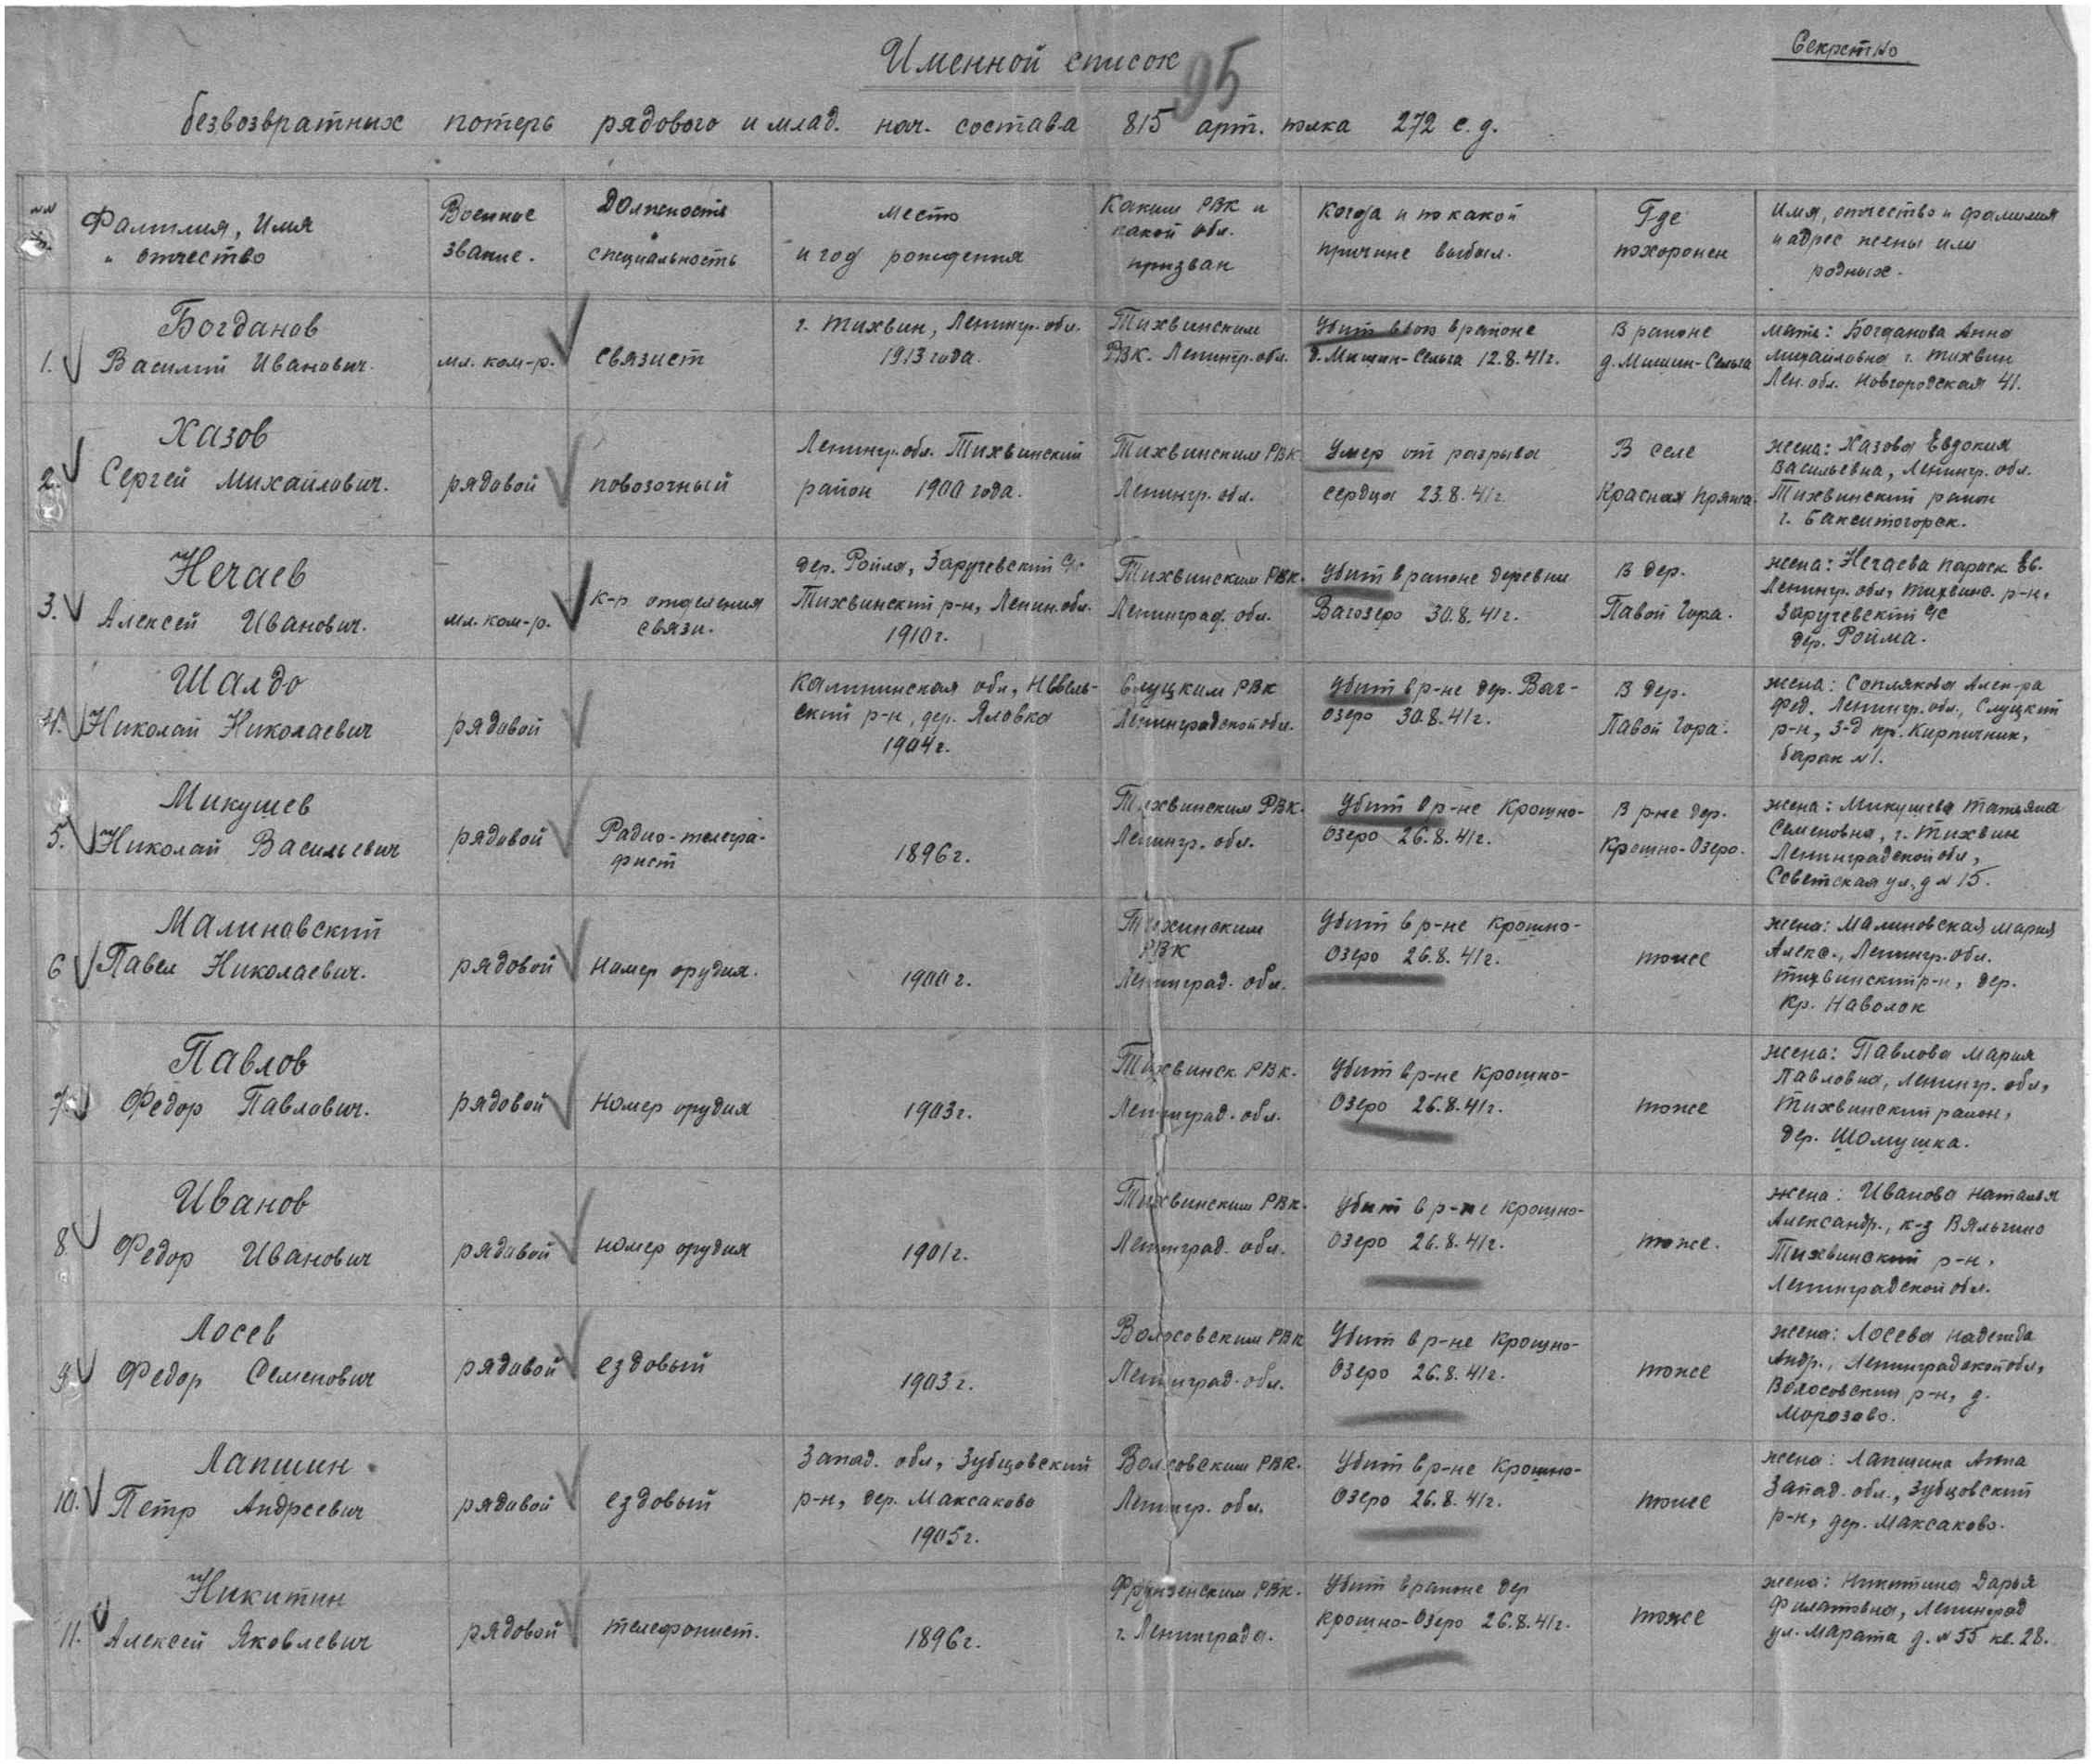 Секретно
Именной список
95
безвозвратных потерь рядового и млад. нач. состава 815 арт. полка 272 с. д.
Фамилия, Имя
и отчество
Военное
звание.
Должность
специальность
место
и год рождения
Каким РВК и
какой обл.
призван
Когда и по какой
причине выбыл.
Где
похоронен
Имя, отчество и фамилия
и адрес жены или
родных.
1.
Богданов
Василий Иванович.
мл. ком-р.
связист
г. Тихвин, Ленингр. обл.
1913 года.
Тихвинским
РВК. Ленингр. обл.
Убит в бою в районе
д. Мишин-Сельга 12.8.41г.
В районе
д. Мишин-Сельга
мать: Богданова Анна
михайловна г. Тихвин
Лен. обл. Новгородская 41.
2.
Хазов
Сергей Михайлович.
рядовой
повозочный
Ленингр. обл. Тихвинский
район 1900 года.
Тихвинским РВК
Ленингр. обл.
Умер от разрыва
сердца 23.8.41г.
В селе
Красная Пряжа.
жена: Хазова Евдокия
Васильевна, Ленингр. обл.
Тихвинский район
г. Бакситогорск.
3.
Нечаев
Алексей Иванович.
мл. ком-р.
к-р отделения
связи.
дер. Ройля, Заручевский с/с
Тихвинский р-н, Ленин. обл.
1910г.
Тихвинским РВК.
Ленинград. обл.
Убит в районе деревни
Вагозеро 30.8.41г.
В дер.
Павой Гора.
жена: Нечаева Параск. Ев.
Ленингр. обл, Тихвинс. р-н,
Заручевский с/с
дер. Ройма.
4.
Шалдо
Николай Николаевич
рядовой
Калининская обл, Невель-
ский р-н, дер. Яловка
1904г.
Слуцким РВК
Ленинградской обл.
Убит в р-не дер. Ваг-
озеро 30.8.41г.
В дер.
Павой Гора.
жена: Соплякова Алек-ра
Фед. Ленингр. обл., Слуцкий
р-н, з-д пр. Кирпичник,
барак №1.
5.
Микушев
Николай Васильевич
рядовой
Радио-телегра-
фист
1896г.
Тихвинским РВК.
Ленингр. обл.
Убит в р-не Крошно-
Озеро 26.8.41г.
В р-не дер.
Крошно-Озеро.
жена: Микушева Татьяна
Семеновна, г. Тихвин
Ленинградской обл,
Советская ул, д №15.
6
Малиновский
Павел Николаевич.
рядовой
Номер орудия.
1900г.
Тихинским
РВК
Ленинград. обл.
Убит в р-не Крошно-
Озеро 26.8.41г.
тоже
жена: Малиновская Мария
Алекс., Ленингр. обл.
Тихвинский р-н, дер.
Кр. Наволок
7.
Павлов
Федор Павлович.
рядовой
Номер орудия
1903г.
Тихвинск РВК.
Ленинград. обл.
Убит в р-не Крошно-
Озеро 26.8.41г.
тоже
жена: Павлова Мария
Павловна, Ленингр. обл,
Тихвинский район,
дер. Шомушка.
8
Иванов
Федор Иванович
рядовой
номер орудия
1901г.
Тихвинским РВК.
Ленинград. обл.
Убит в р-не Крошно-
Озеро 26.8.41г.
тоже.
жена: Иванова Наталья
Александр., к-з Вяльгино
Тихвинский р-н,
Ленинградской обл.
9.
Лосев
Федор Семенович
рядовой
ездовый
1903г.
Волосовским РВК
Ленинград. обл.
Убит в р-не Крошно-
Озеро 26.8.41г.
тоже
жена: Лосева Надежда
Андр., Ленинградской обл,
Волосовский р-н, д.
Морозово.
10.
Лапшин
Петр Андреевич
рядовой
ездовый
Запад. обл, Зубцовский
р-н, дер. Максаково
1905г.
Волосовским РВК.
Ленингр. обл.
Убит в р-не Крошно-
Озеро 26.8.41г.
тоже
жена: Лапшина Анна
Запад. обл., Зубцовский
р-н, дер. Максаково.
11.
Никитин
Алексей Яковлевич
рядовой
телефонист.
1896г.
Фрунзенским РВК.
г. Ленинграда.
Убит в районе дер
Крошно-Озеро 26.8.41г.
тоже
жена: Никитина Дарья
Филатовна, Ленинград
ул. Марата д. №55 кв. 28.